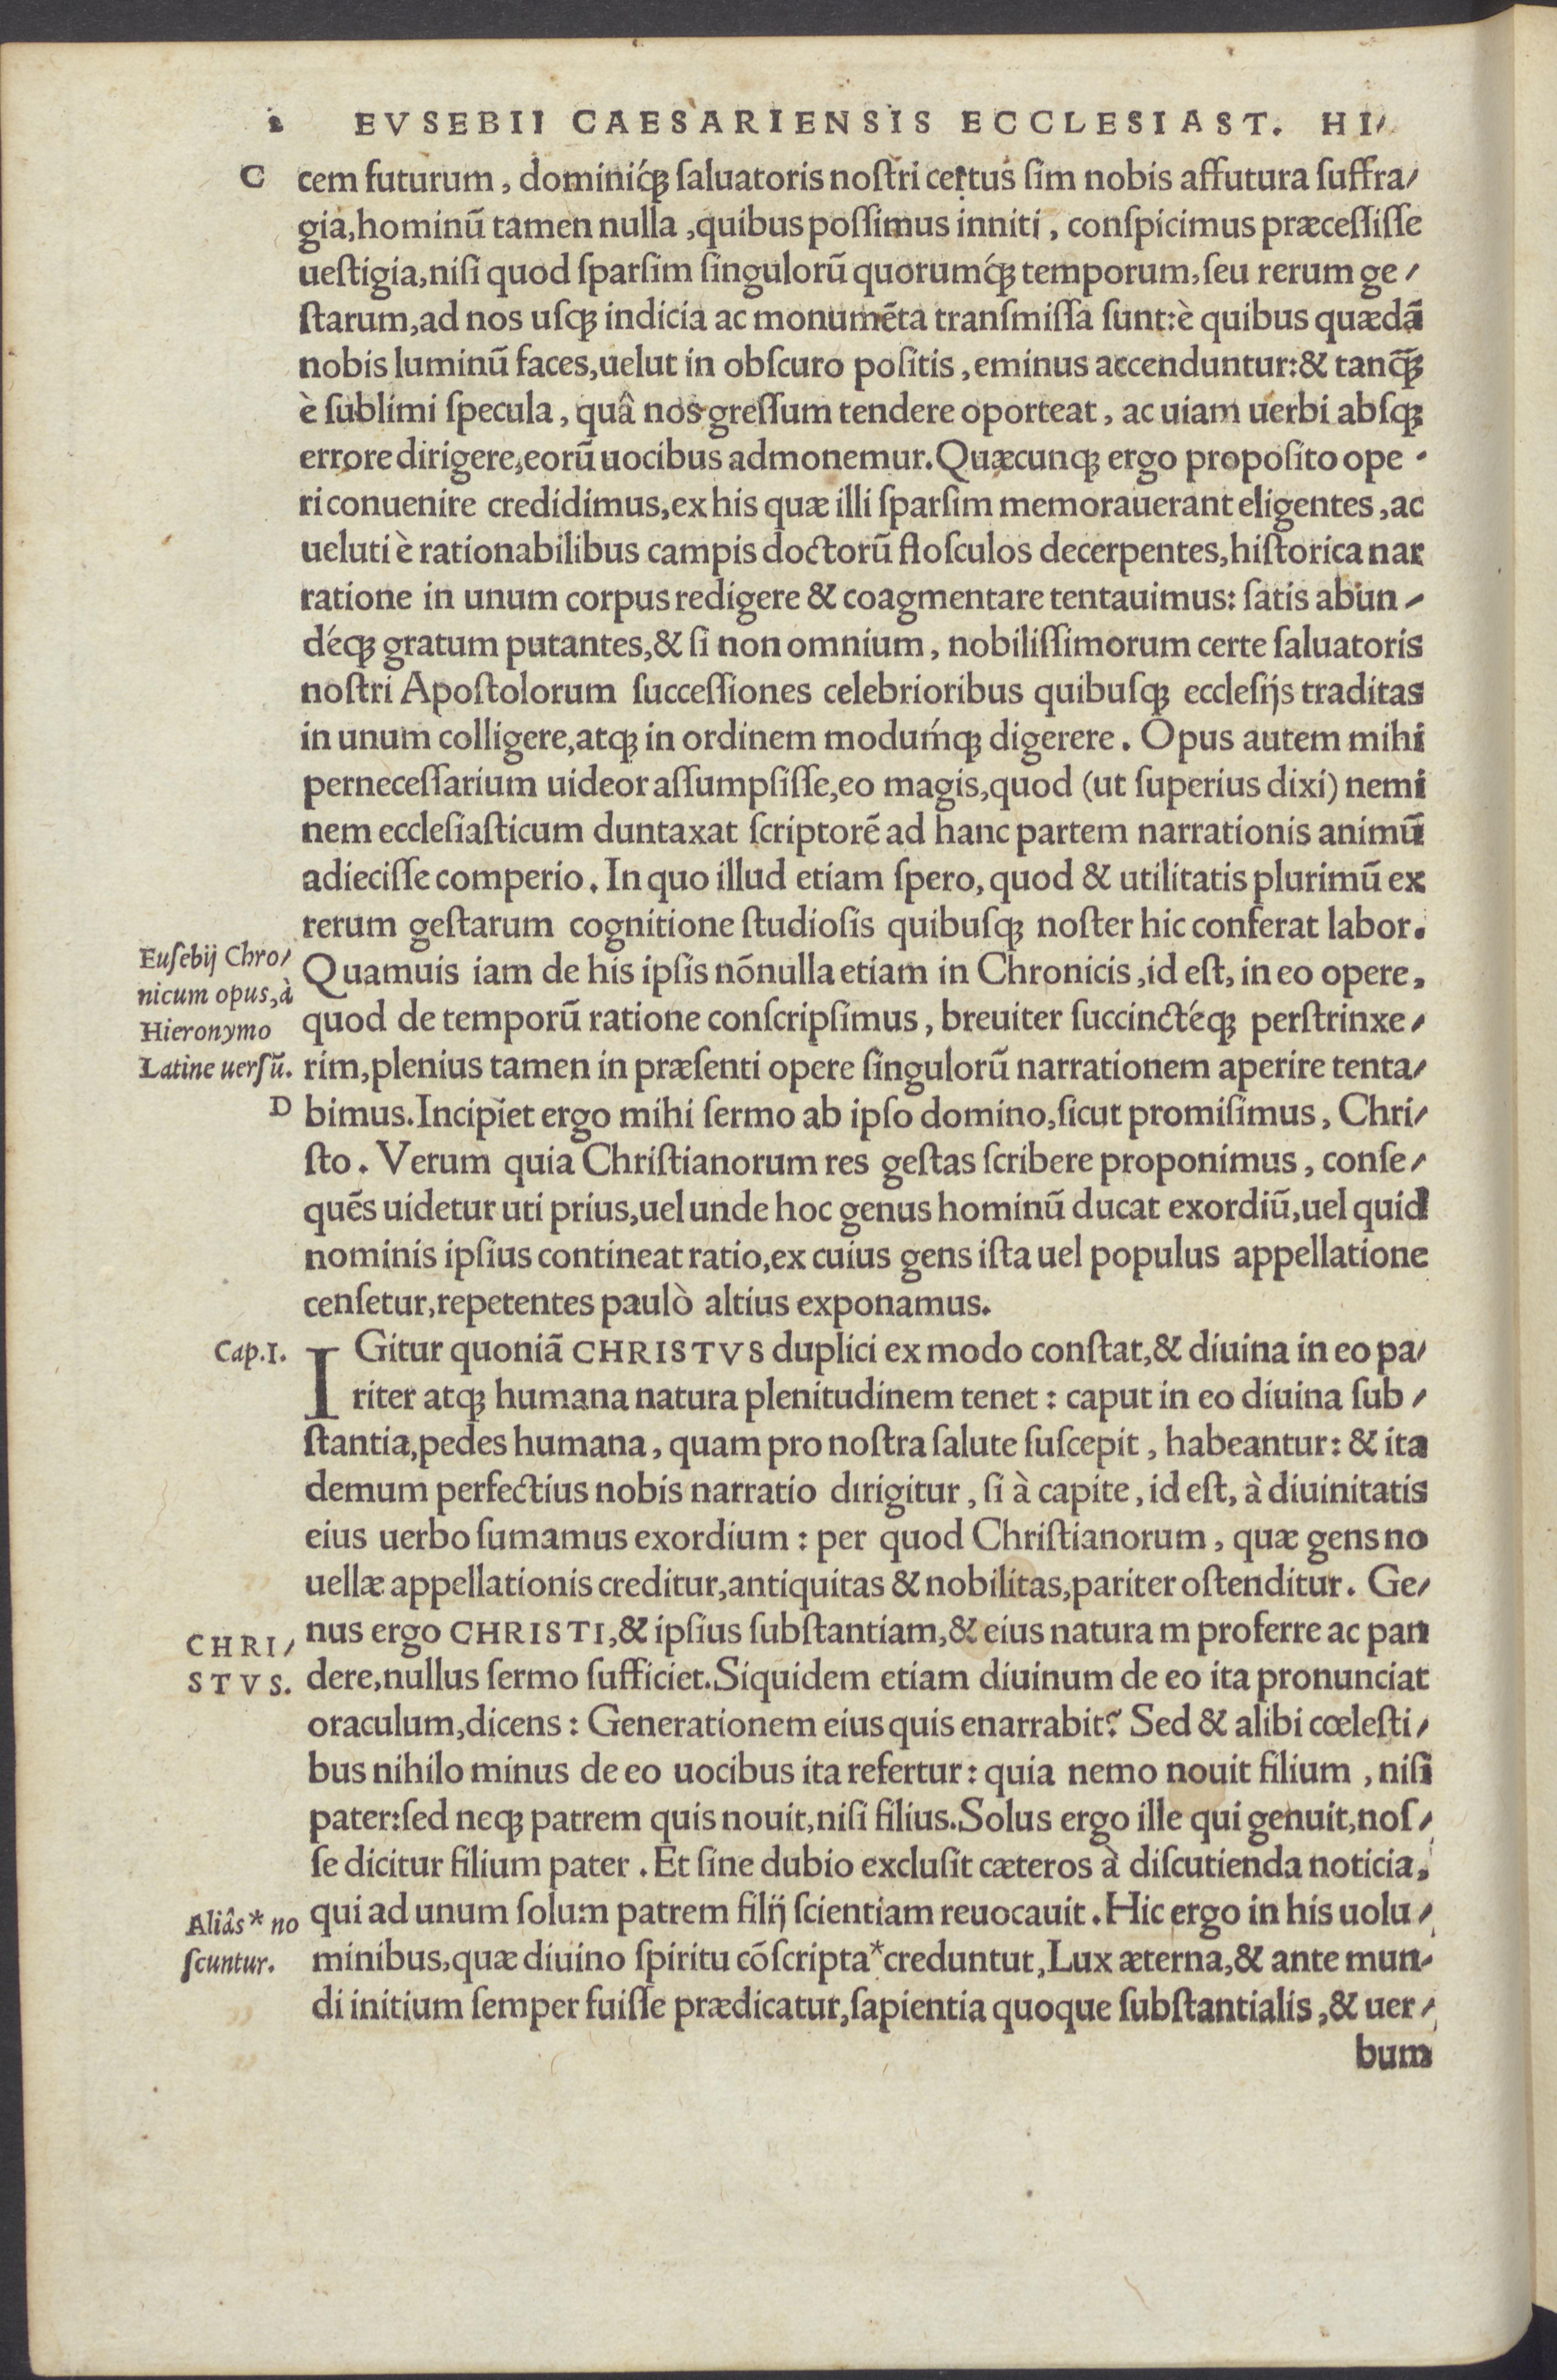 2 EVSEBII CAESARIENSIS ECCLESIAST. HI/
C cem futurum, dominiq́ꝫ ſaluatoris noſtri certus ſim nobis affutura ſuffra/
gia, hominũ tamen nulla, quibus poſſimus inniti, conſpicimus præceſſiſſe
ueſtigia, niſi quod ſparſim ſingulorũ quorumq́ꝫ temporum, ſeu rerum ge/
ſtarum, ad nos uſqꝫ indicia ac monumẽta tranſmiſſa ſunt: è quibus quædã
nobis luminũ faces, uelut in obſcuro poſitis, eminus accenduntur: & tanq̃ꝫ
è ſublimi ſpecula, quâ nos greſſum tendere oporteat, ac uiam uerbi abſqꝫ
errore dirigere, eorũ uocibus admonemur. Quæcunqꝫ ergo propoſito ope/
ri conuenire credidimus, ex his quæ illi ſparſim memorauerant eligentes, ac
ueluti è rationabilibus campis doctorũ floſculos decerpentes, hiſtorica nar
ratione in unum corpus redigere & coagmentare tentauimus: ſatis abun/
déqꝫ gratum putantes, & ſi non omnium, nobiliſſimorum certe ſaluatoris
noſtri Apoſtolorum ſucceſſiones celebrioribus quibuſqꝫ eccleſijs traditas
in unum colligere, atqꝫ in ordinem modumq́ꝫ digerere. Opus autem mihi
perneceſſarium uideor aſſumpſiſſe, eo magis, quod (ut ſuperius dixi) nemi
nem eccleſiaſticum duntaxat ſcriptorẽ ad hanc partem narrationis animũ
adieciſſe comperio. In quo illud etiam ſpero, quod & utilitatis plurimũ ex
rerum geſtarum cognitione ſtudioſis quibuſqꝫ noſter hic conferat labor.
Euſebij Chro/
nicum opus, à
Hieronymo
Latine uerſũ.
Quamuis iam de his ipſis nõnulla etiam in Chronicis, id eſt, in eo opere,
quod de temporũ ratione conſcripſimus, breuiter ſuccinctéqꝫ perſtrinxe/
rim, plenius tamen in præſenti opere ſingulorũ narrationem aperire tenta/
D bimus. Incipiet ergo mihi ſermo ab ipſo domino, ſicut promiſimus, Chri/
ſto. Verum quia Chriſtianorum res geſtas ſcribere proponimus, conſe/
quẽs uidetur uti prius, uel unde hoc genus hominũ ducat exordiũ, uel quid
nominis ipſius contineat ratio, ex cuius gens iſta uel populus appellatione
cenſetur, repetentes paulò altius exponamus.
Cap.I.
IGitur quoniã CHRISTVS duplici ex modo conſtat, & diuina in eo pa/
riter atqꝫ humana natura plenitudinem tenet: caput in eo diuina ſub/
ſtantia, pedes humana, quam pro noſtra ſalute ſuſcepit, habeantur: & ita
demum perfectius nobis narratio dirigitur, ſi à capite, id eſt, à diuinitatis
eius uerbo ſumamus exordium: per quod Chriſtianorum, quæ gens no
uellæ appellationis creditur, antiquitas & nobilitas, pariter oſtenditur. Ge/
CHRI/
STVS.
nus ergo CHRISTI, & ipſius ſubſtantiam, & eius natura m proferre ac pan
dere, nullus ſermo ſufficiet. Siquidem etiam diuinum de eo ita pronunciat
oraculum, dicens: Generationem eius quis enarrabit? Sed & alibi cœleſti/
bus nihilo minus de eo uocibus ita refertur: quia nemo nouit filium, niſi
pater: ſed neqꝫ patrem quis nouit, niſi filius. Solus ergo ille qui genuit, noſ/
ſe dicitur filium pater. Et ſine dubio excluſit cæteros à diſcutienda noticia,
Aliâs * no
ſcuntur.
qui ad unum ſolum patrem filij ſcientiam reuocauit. Hic ergo in his uolu/
minibus, quæ diuino ſpiritu cõſcripta * creduntut, Lux æterna, & ante mun/
di initium ſemper fuiſſe prædicatur, ſapientia quoque ſubſtantialis, & uer/
bum